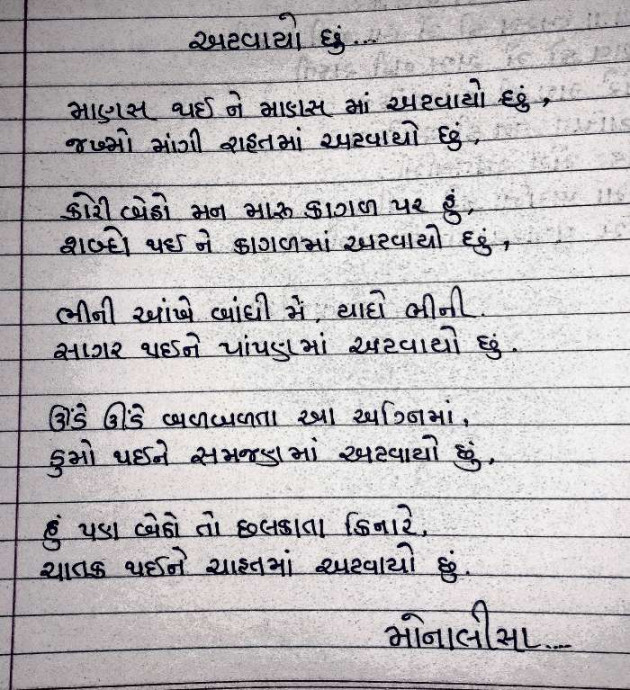 અટવાયો છું...
માણસ થઈ ને માણસ માં અટવાયો છું,
જખ્મો માંગી રાહતમાં અટવાયો છું,
કોરી બેઠો મન મારુ કાગળ પર હું,
શબ્દો થઈ ને કાગળમાં અટવાયો છું,
ભીની આંખે બાંધી મેં, યાદો ભીની.
સાગર થઈને પાંપણમાં અટવાયો છું.
ઊંડે ઊંડે બળબળતા આ અગ્નિમાં,
ડુમો થઈને સમજણમાં અટવાયો છું,
હું પણ બેઠો તો છલકાતા કિનારે,
ચાતક થઈને ચાહતમાં અટવાયો છું.
મોનાલીસા....